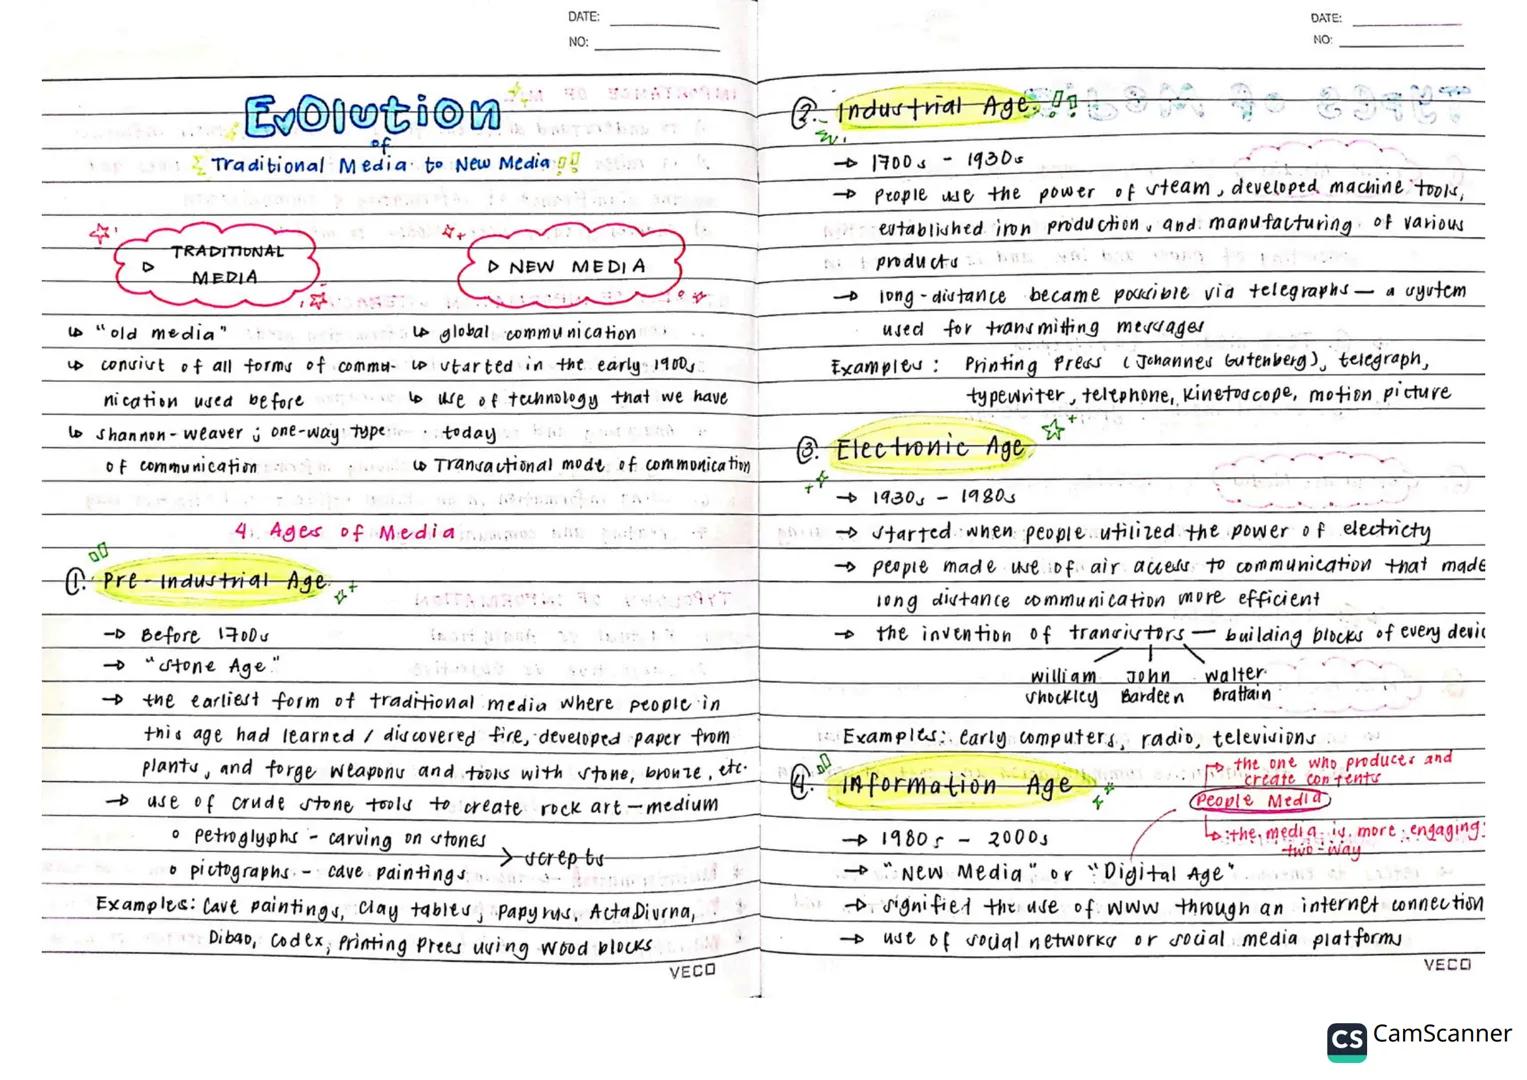 DATE:
NO:
Evolution
of
Traditional Media to New Media
TRADITIONAL
MEDIA
↳ "old media"
↳ consist of all forms of commu-
nication used before
↳ shannon-weaver ; one-way type
of communication
NEW MEDIA
↳ global communication
↳ started in the early 1900s
↳ use of technology that we have
today
↳ Transactional mode of communication
4 Ages of Media
1. Pre-Industrial Age
→ Before 1700s
→ "stone Age"
→ the earliest form of traditional media where people in
this age had learned / discovered fire, developed paper from
plants, and forge weapons and tools with stone, bronze, etc.
→ use of crude stone tools to create rock art — medium
○ petroglyphs - carving on stones
○ pictographs - cave paintings
> screpts
Examples: Cave paintings, Clay tables, Papyrus, Acta Diurna,
Dibao, Codex, Printing Prees using Wood blocks
VECO
DATE:
NO:
2. Industrial Age
→ 1700s - 1930s
→ people use the power of steam, developed machine tools,
established iron production, and manufacturing of various
products
→ long-distance became possible via telegraphs — a system
used for transmitting messages
Examples: Printing Press (Johannes Gutenberg), telegraph,
typewriter, telephone, Kinetoscope, motion picture
3. Electronic Age
→ 1930s - 1980s
→ started when people utilized the power of electricty
→ people made use of air access to communication that made
long distance communication more efficient
→ the invention of transistors — building blocks of every devic
william John walter
shockley Bardeen Brattain
Examples: early computers, radio, televisions
4. Information Age
→ the one who produces and
create contents
People Media
↳ the media is more engaging:
two-way
→ 1980s - 2000s
→ "New Media" or "Digital Age"
→ signified the use of WWW through an internet connection
→ use of social networks or social media platforms
VECO
CS CamScanner